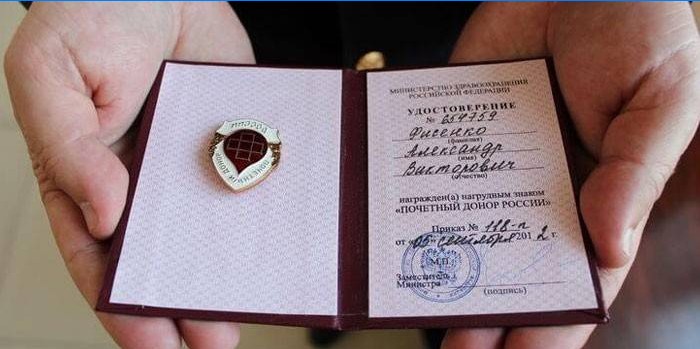 ПОЧЕТНЫЙ ДОНОР
РОССИИ
МИНИСТЕРСТВО ЗДРАВООХРАНЕНИЯ
РОССИЙСКОЙ ФЕДЕРАЦИИ
УДОСТОВЕРЕНИЕ
№ 654759
Фисенко
(фамилия)
Александр
(имя)
Викторович
(отчество)
награжден(а) нагрудным знаком
«ПОЧЕТНЫЙ ДОНОР РОССИИ»
Приказ № 118-п
от «05» сентября 2012 г.
М.П.
Заместитель
Министра
(подпись)